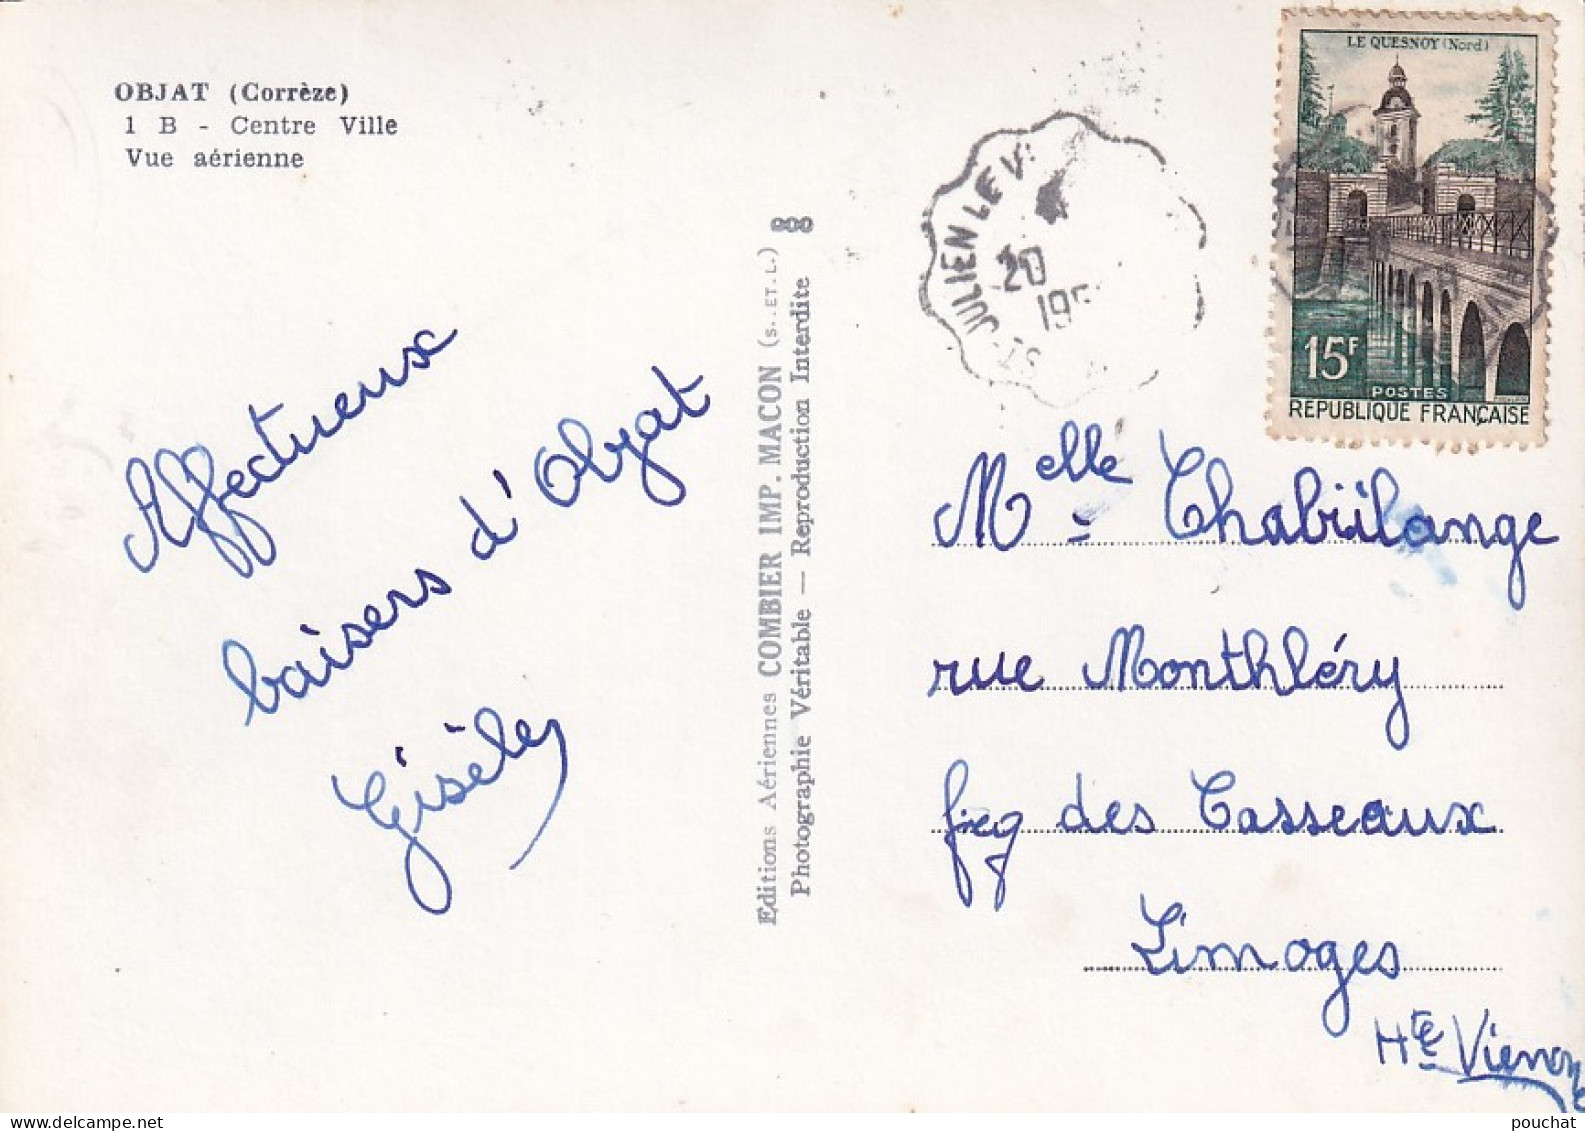 OBJAT (Corrèze)
1 B - Centre Ville
Vue aérienne
Affectueux
baisers d'Objat
Gisèle
Editions Aériennes COMBIER IMP. MACON (S. ET. L.)
Photographie Véritable — Reproduction Interdite
ST-JULIEN LE V
20
195
LE QUESNOY (Nord)
15F
POSTES
REPUBLIQUE FRANÇAISE
Melle Chabrilange
rue Monthléry
fbg des Casseaux
Limoges
Hte Vienne
pouchat